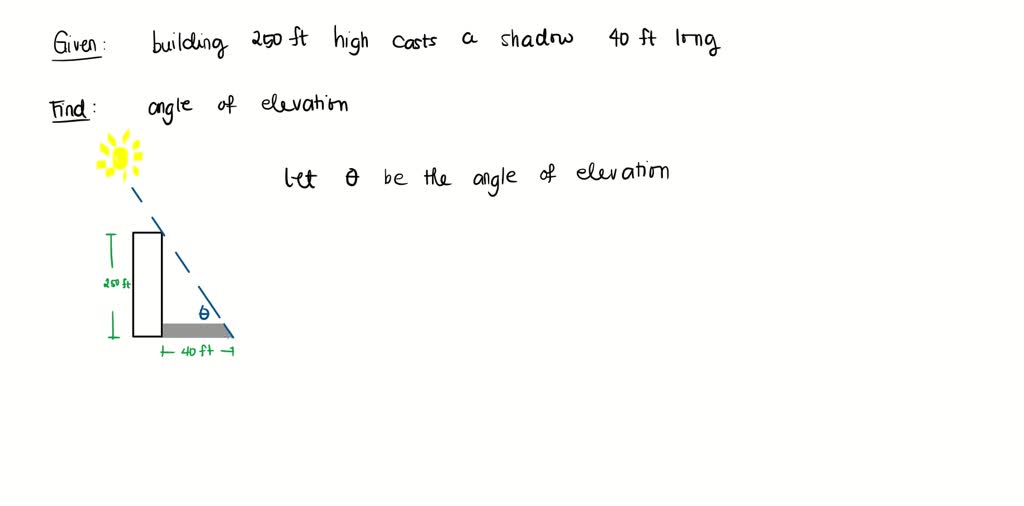 Given: building 250 ft high casts a shadow 40 ft long
Find: angle of elevation
let θ be the angle of elevation
250 ft
θ
40 ft